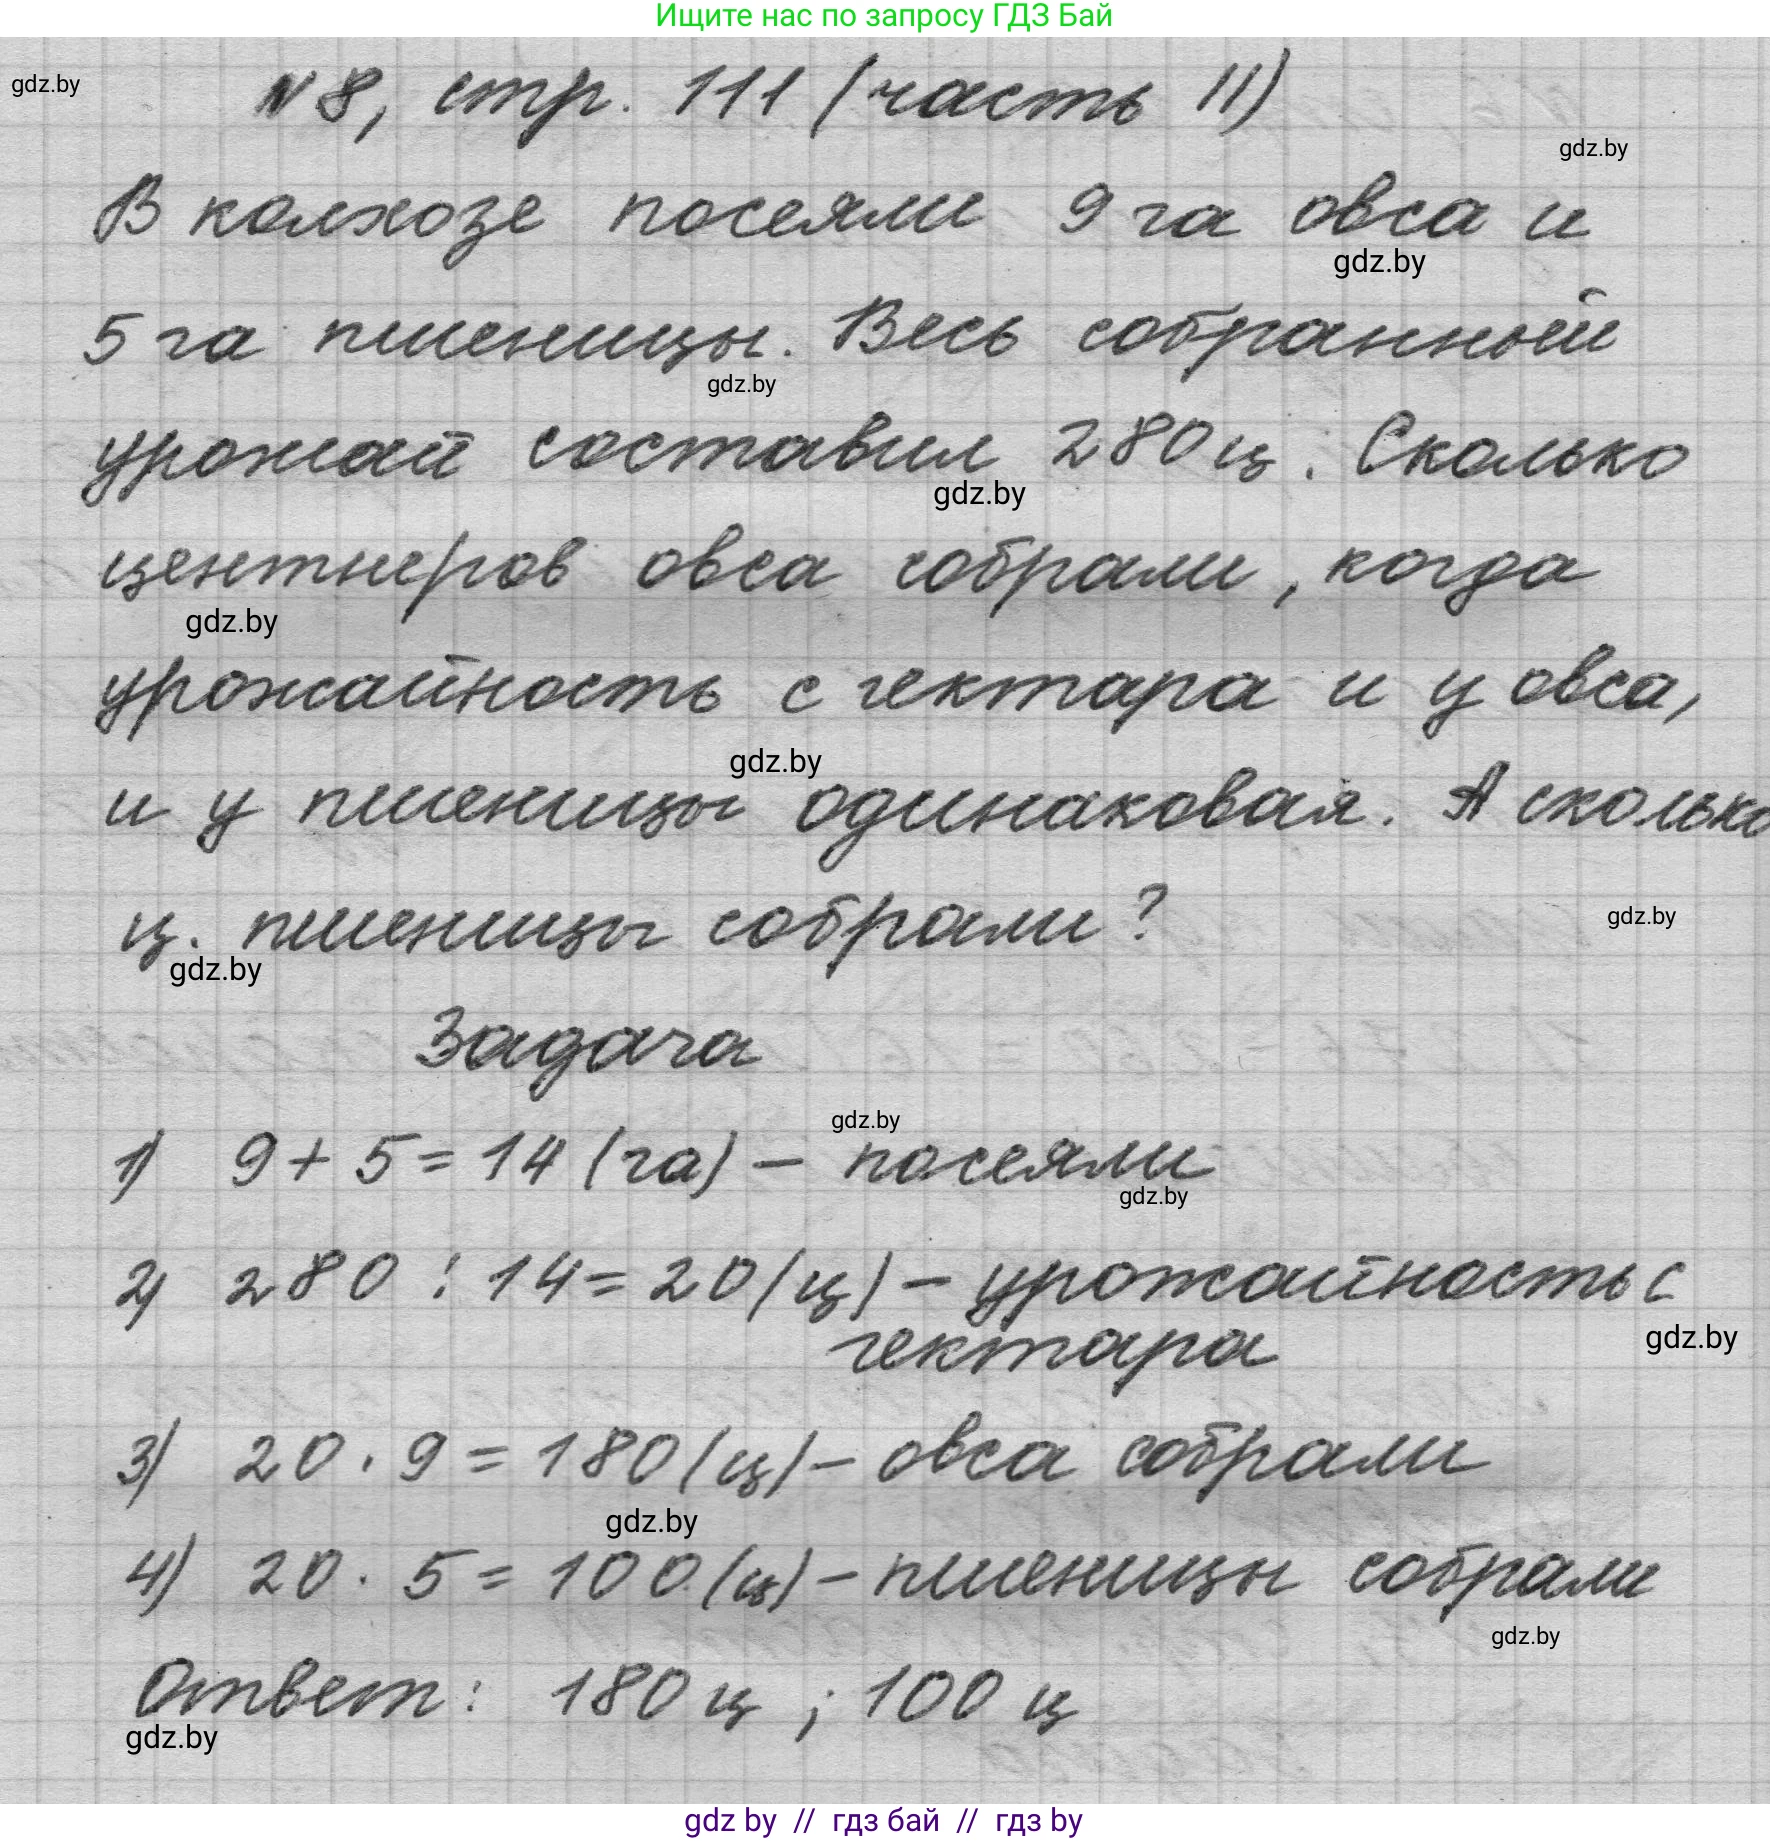 Ищите нас по запросу ГДЗ Бай
gdz.by
№8, стр. 111 (часть II)
gdz.by
В колхозе посеяли 9 га овса и
gdz.by
5 га пшеницы. Весь собранный
gdz.by
урожай составил 280 ц. Сколько
gdz.by
центнеров овса собрали, когда
gdz.by
урожайность с гектара и у овса,
gdz.by
и у пшеницы одинаковая. А сколько
gdz.by
ц. пшеницы собрали?
gdz.by
Задача
gdz.by
1) 9 + 5 = 14 (га) – посеяли
gdz.by
2) 280 : 14 = 20 (ц) – урожайность с
гектара
gdz.by
3) 20 · 9 = 180 (ц) – овса собрали
gdz.by
4) 20 · 5 = 100 (ц) – пшеницы собрали
gdz.by
Ответ: 180 ц ; 100 ц
gdz.by
gdz by // гдз бай // гдз by